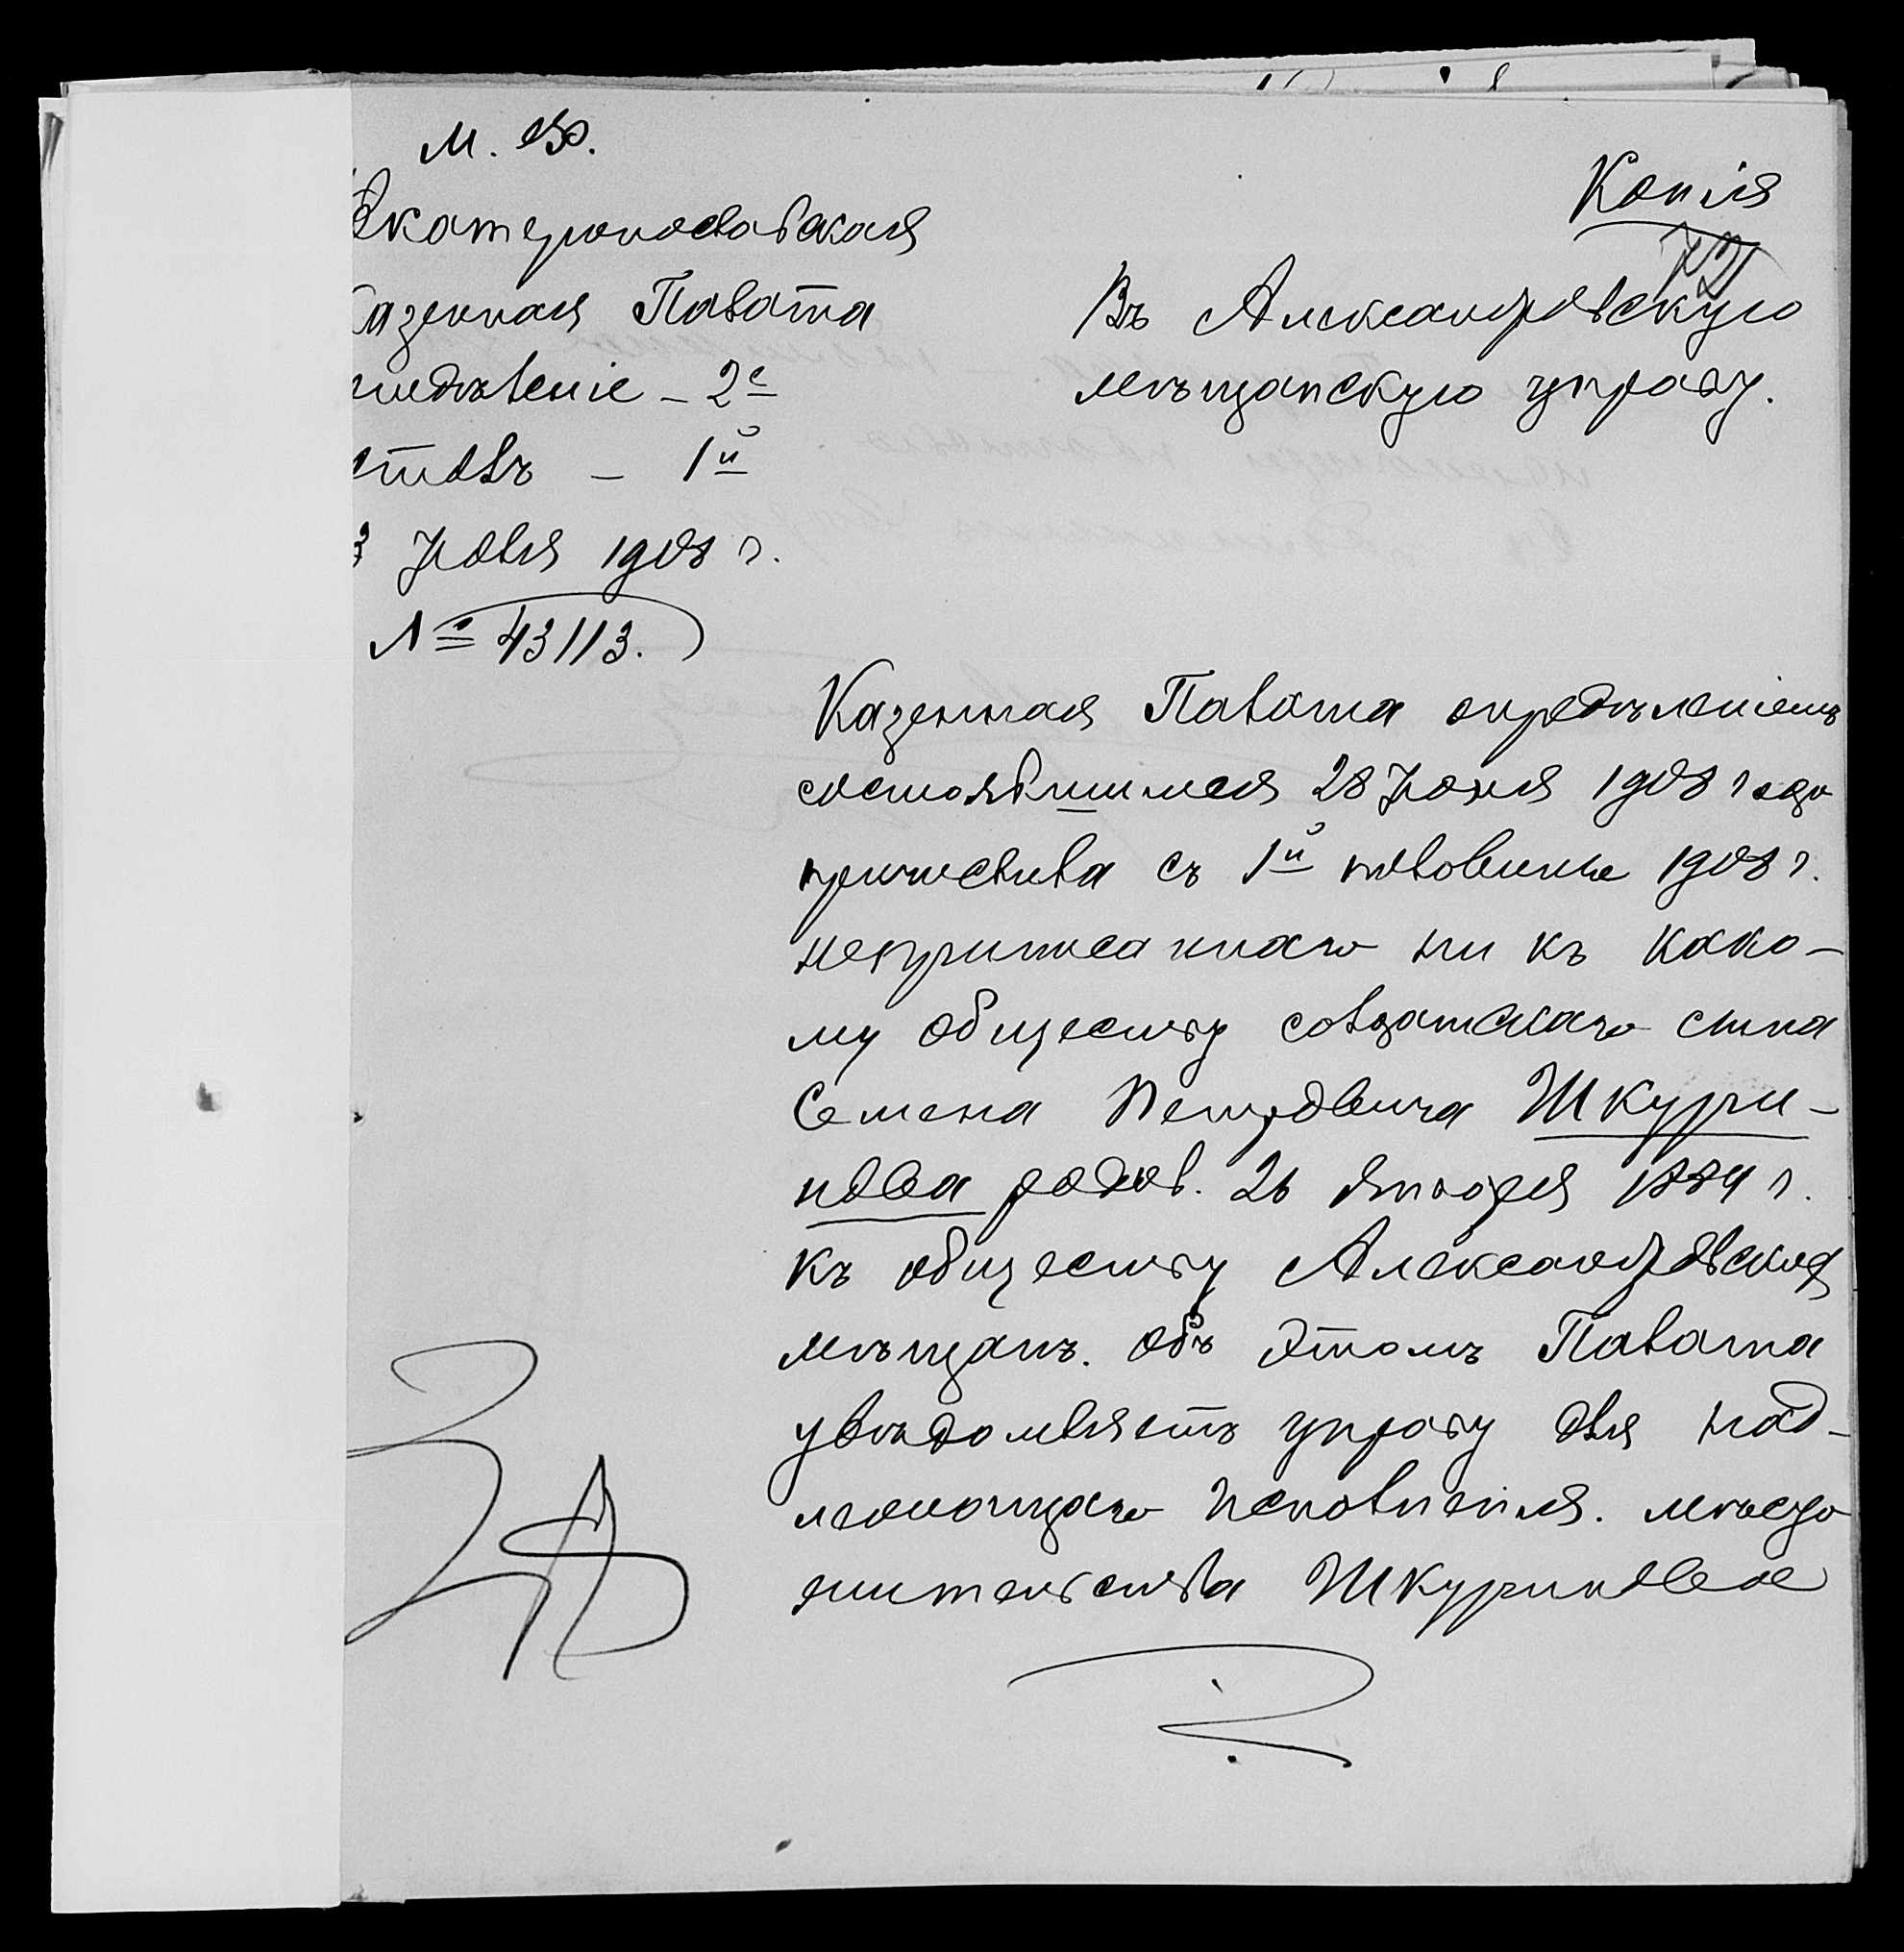 М. Ф.
Екатеринославская
Казенная Палата
Отдѣленіе – 2е
Столъ – 1й
3 Іюля 1908 г.
№ 43113.
Копія
72
Въ Александровскую
мѣщанскую управу.
Казенная Палата опредѣленіемъ
состоявшимся 28 Іюня 1908 года
причислила съ 1й половины 1908 г.
неприписаннаго ни къ како-
му обществу солдатскаго сына
Семена Петровича Шкури-
нова родив. 26 Января 1884 г.
къ обществу Александровскихъ
мѣщанъ. Объ этомъ Палата
увѣдомляетъ управу для над-
лежащаго исполненія. Мѣсто
жительства Шкуринова